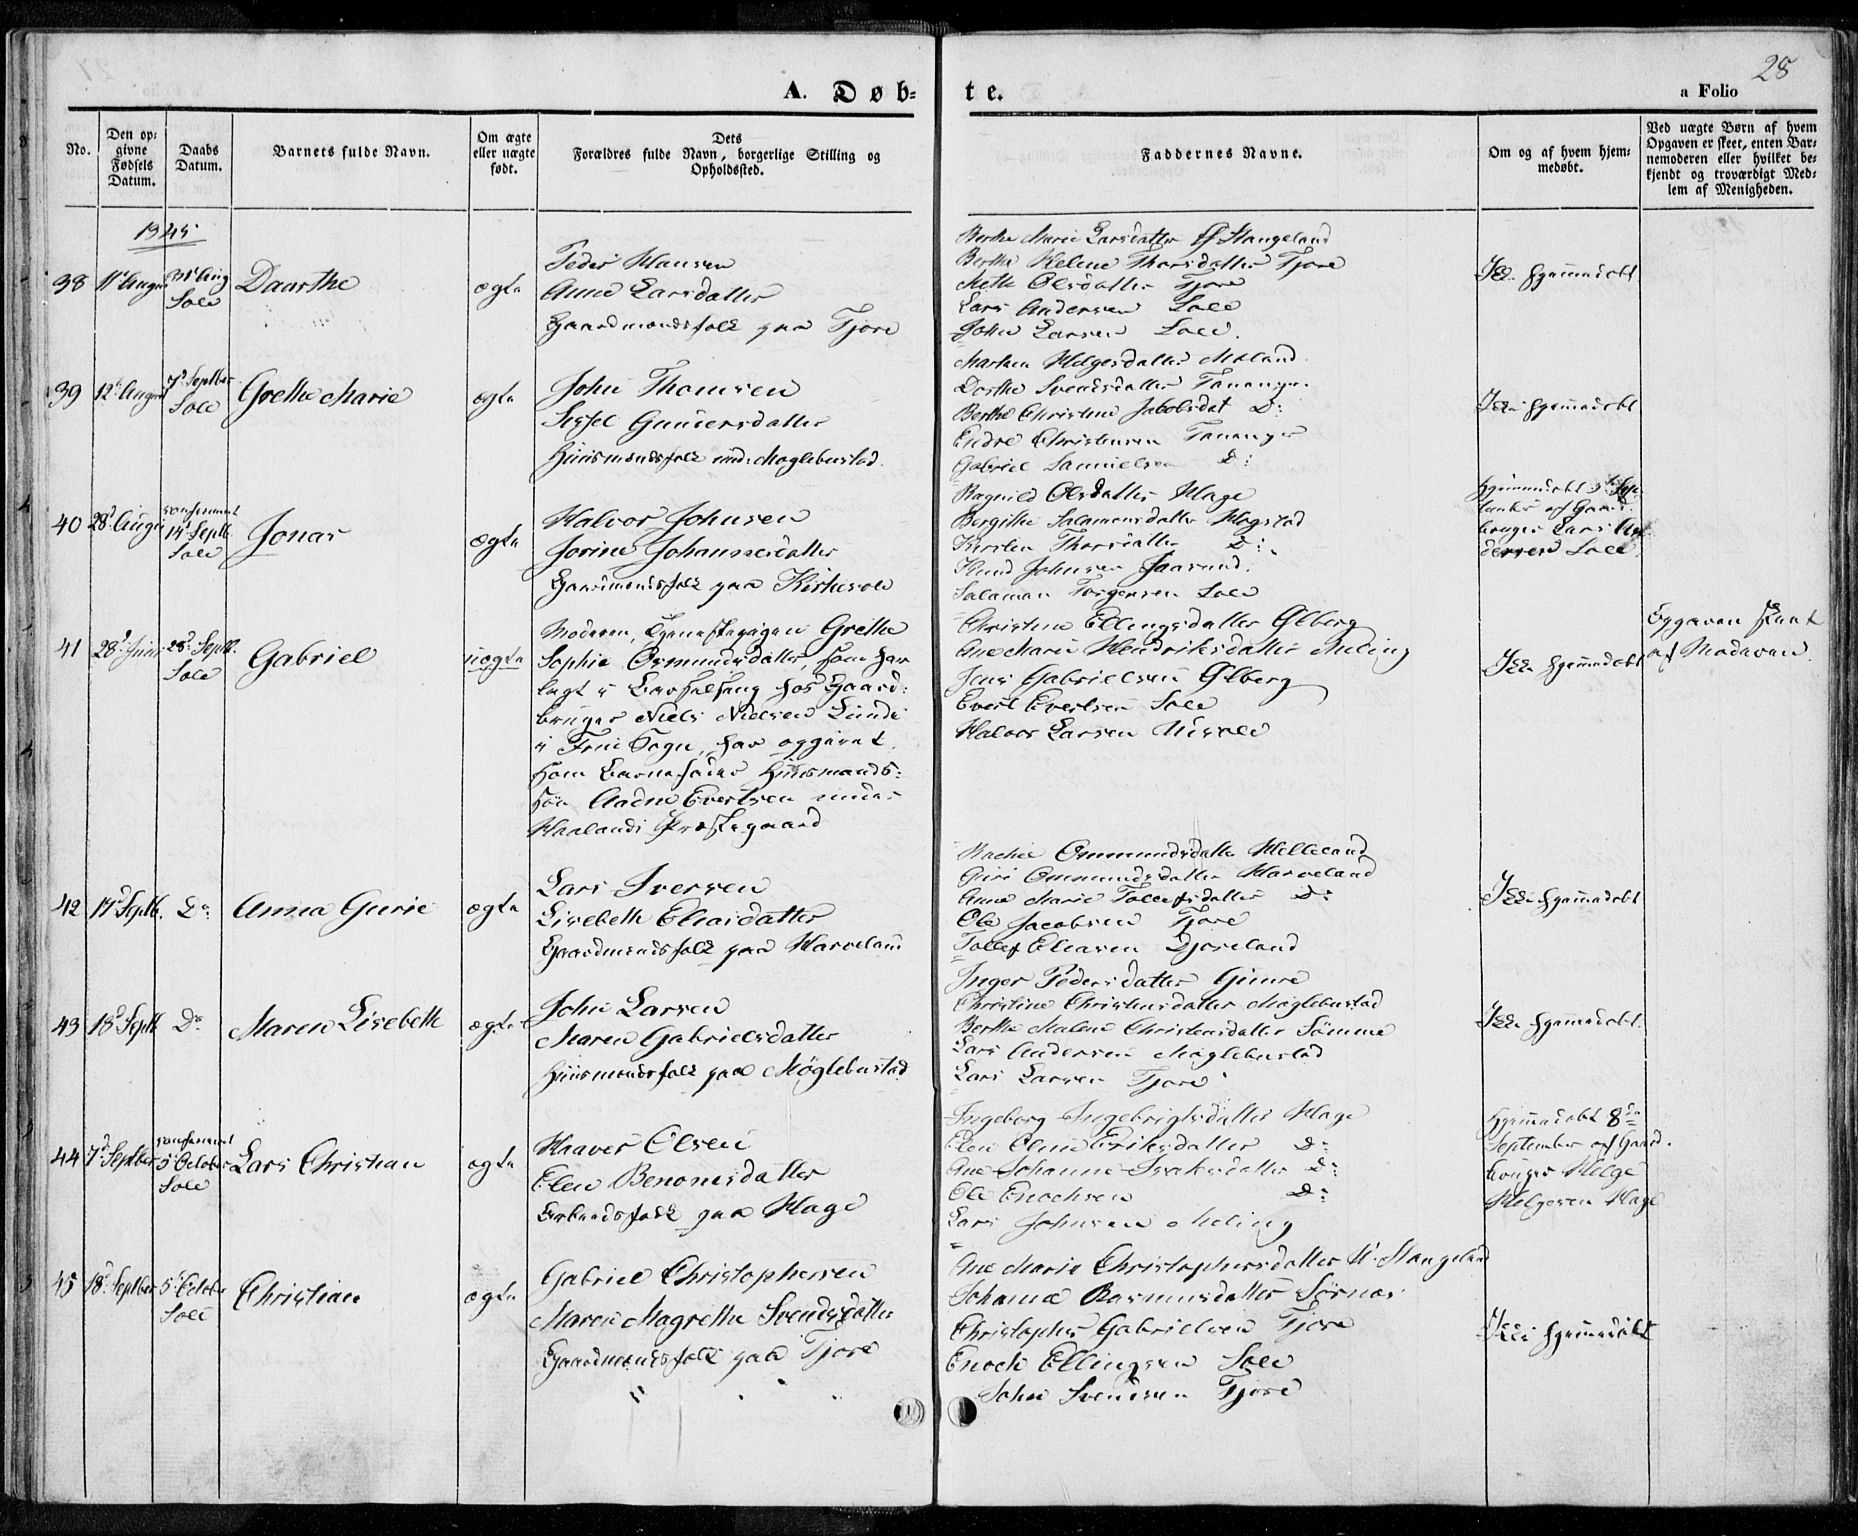 28
A. Døb=
te.
a Folio
No.
Den op=
givne
Fødsels
Datum.
Daabs
Datum.
Barnets fulde Navn.
Om ægte
eller uægte
født.
Dets
Forældres fulde Navn, borgerlige Stilling og
Opholdssted.
Faddernes Navne.
Om og af hvem hjem=
medøbt.
Ved uægte Børn af hvem
Opgaven er skeet, enten Bar=
nemoderen eller hvilket be=
kjendt og troværdigt Med=
lem af Menigheden.
1845
38
11t August
31t Aug
Sole
Daarthe
ægte
Peder Hansen
Anne Larsdatter
Gaardmandsfolk paa Tjore
Berthe Marie Larsdatter Stangeland
Berthe Helene Thorsdatter Tjore
Mette Olsdatter Tjore
Lars Andersen Sole
John Larsen Sole.
Ikke hjemmedøbt
39
12t August
7d Septber
Sole
Grethe Marie
ægte
John Thomsen
Sissel Gunnersdatter
Huusmandsfolk und: Møglebustad.
Marthen Helgesdatter Meland.
Dorthe Svendsdatter Tananger.
Berthe Christine Jakobsdat D:
Endre Christensen Tananger
Gabriel Samuelsen D:
Ikke hjemmedøbt
40
28d August
confirmeret
14d Septb.
Sole
Jonas
ægte
Halvor Johnsen
Jorine Johannesdatter
Gaardmandsfolk paa Kirkesole
Ragnild Olsdatter Hage
Bergithe Salamonsdatter Hogstad
Kirsten Thorsdatter D:
Knud Johnsen Jaasund.
Salamon Torgersen Sole
Hjemmedøbt 5t Sep
tember af Gaard
bruger Lars An
dersen Sole.
41
28d Juni
28d Septb.
Sole
Gabriel
uægte
Moderen, Tjenestepigen Grethe
Sophie Osmundsdatter, som har
lagt i Barselseng hos Gaard=
bruger Niels Nielsen Lunde
i Sogn, har opgivet
som Barnefader Huusmands=
søn Aadne Evertsen under
Haalands Præstegaard
Christine Ellingsdatter Ølberg
Ane Marie Hendriksdatter Meling
Jens Gabrielsen Ølberg
Evert Evertsen Sole
Halvor Larsen
Ikke hjemmedøbt
Opgaven skeet
af Moderen
42
17d Septb.
Do
Anna Gurie
ægte
Lars Iversen
Lisebeth Eliasdatter
Gaardmandsfolk paa Harveland
Rachel Ommundsdatter Helleland
Guri Ommundsdatter Harveland
Anne Marie Tollefsdatter D:
Ole Jacobsen Tjore
Tollef Eliasen Djoseland
Ikke hjemmedøbt
43
18d Septb
Do
Maren Lisebeth
ægte
John Larsen
Maren Gabrielsdatter
Huusmandsfolk paa Møglebustad
Inger Pedersdatter Gimre
Christine Christensdatter Møglebustad
Berthe Malene Christensdatter Sömme
Lars Andersen Møglebustad
Lars Larsen Tjore
Ikke hjemmedøbt.
44
7d Septber
confirmeret
5 October
Sole
Lars Christian
ægte
Haaver Olsen
Elen Benonisdatter
Arbeidsfolk paa Hage
Ingeborg Ingebrigtsdatter Hage
Elen Oline Eriksdatter D:
Ane Johanne Isaksdatter D:
Ole Enochsen D:
Lars Johnsen Meling
Hjemmedøbt 8de
September af Gaard.
bruger Helge
Helgesen Hage
45
18d Septber
5 October
Sole
Christian
ægte
Gabriel Christophersen
Maren Magrethe Svendsdatter
Gaardmandsfolk paa Tjore
Ane Marie Christophersdatter N. Stangeland
Johanna Rasmusdatter Sörnes
Christopher Gabrielsen Tjore
Enoch Ellingsen Sole
John Svendsen Tjore
Ikke hjemmedøbt